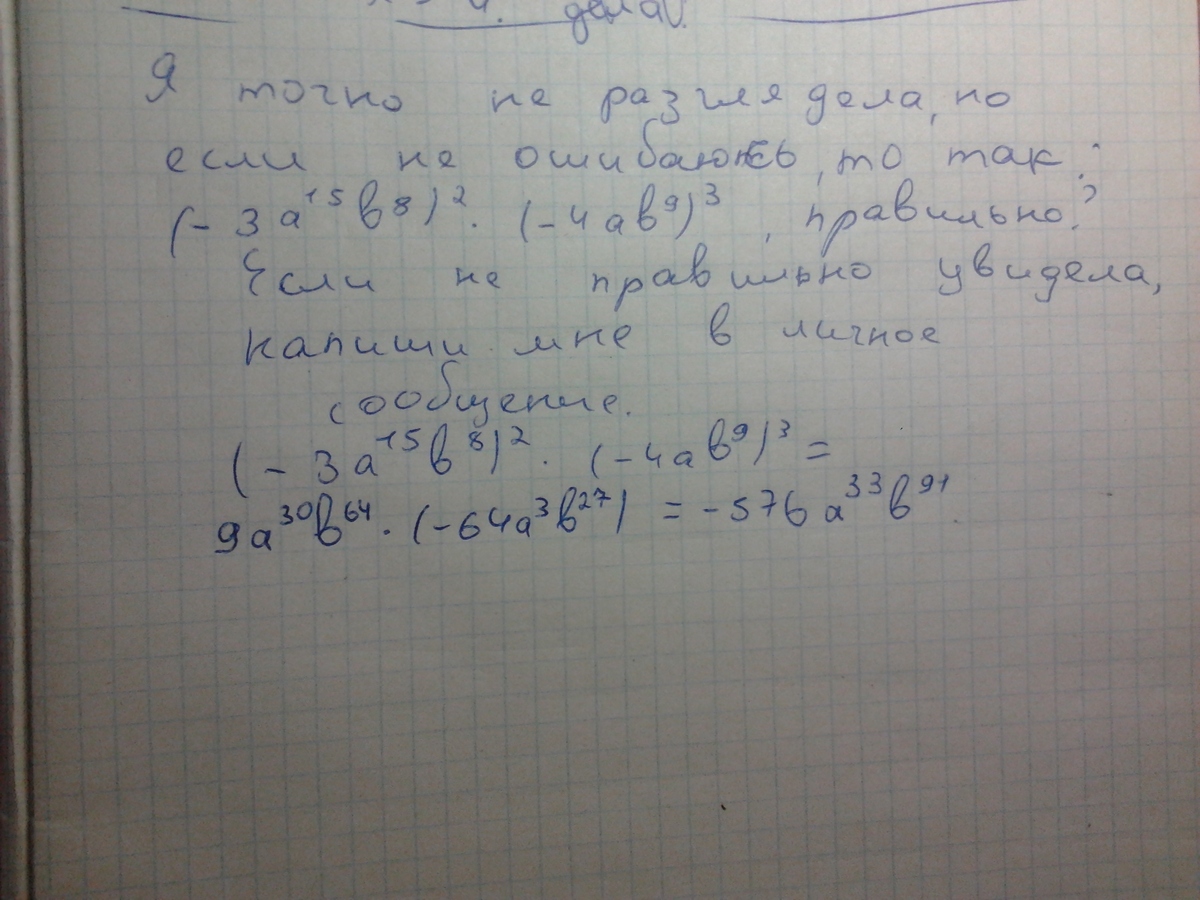 делаю.
Я точно не разглядела, но
если не ошибаюсь, то так:
(-3a¹⁵b⁸)² · (-4ab⁹)³, правильно?
Если не правильно увидела,
напиши мне в личное
сообщение.
(-3a¹⁵b⁸)² · (-4ab⁹)³ =
9a³⁰b⁶⁴ · (-64a³b²⁷) = -576a³³b⁹¹